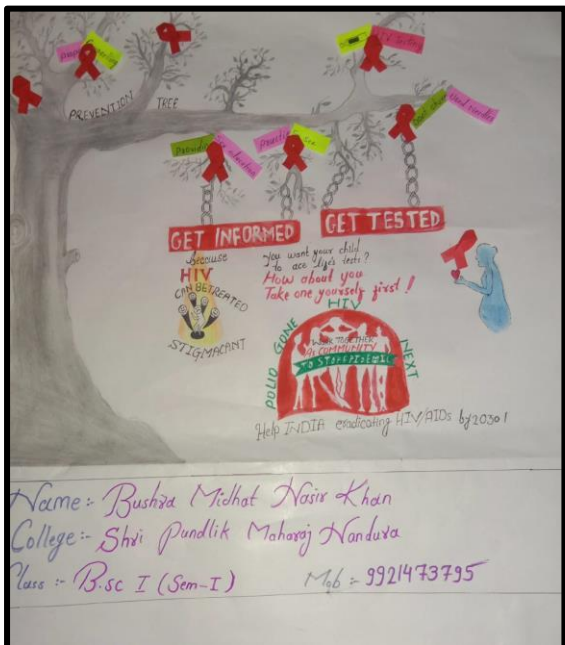 PREVENTION TREE
HIV Testing
used needles
GET INFORMED
GET TESTED
because
HIV
CAN BE TREATED
STIGMA CAN'T
You want your child
to ace life's tests?
How about you
Take one yourself first!
POLIO GONE HIV NEXT
WORK TOGETHER
AS COMMUNITY
TO STOP EPIDEMIC
Help INDIA eradicating HIV/AIDs by 2030!
Name:- Bushra Midhat Nasir Khan
College:- Shri Pundlik Maharaj Nandura
Class :- B.sc I (Sem-I) Mob :- 9921473795